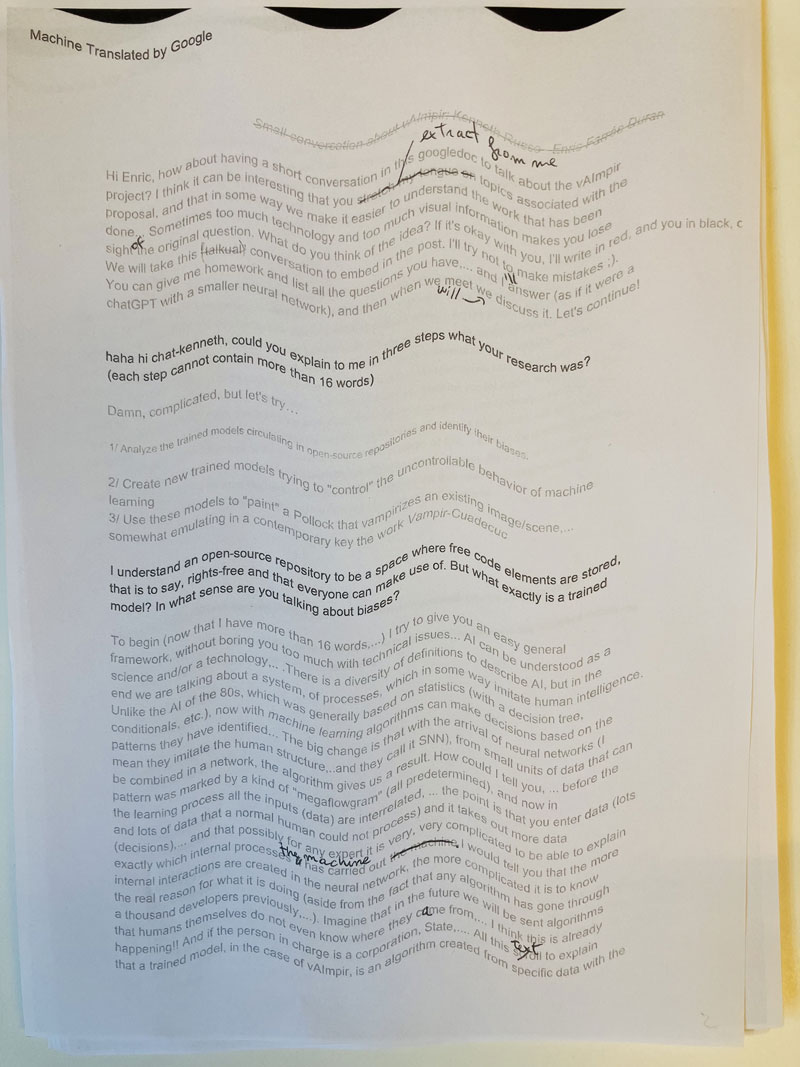 Machine Translated by Google
Small conversation about vAImpir: Kenneth Russo - Enric Farrés Duran
extract from me
Hi Enric, how about having a short conversation in this googledoc to talk about the vAImpir
project? I think it can be interesting that you stretch my tongue on topics associated with the
proposal, and that in some way we make it easier to understand the work that has been
done... Sometimes too much technology and too much visual information makes you lose
sight of the original question. What do you think of the idea? If it's okay with you, I'll write in red, and you in black, c
We will take this (talkual) conversation to embed in the post. I'll try not to make mistakes ;).
You can give me homework and list all the questions you have,... and I'll answer (as if it were a
chatGPT with a smaller neural network), and then when we meet we will discuss it. Let's continue!
haha hi chat-kenneth, could you explain to me in three steps what your research was?
(each step cannot contain more than 16 words)
Damn, complicated, but let's try…
1/ Analyze the trained models circulating in open-source repositories and identify their biases.
2/ Create new trained models trying to "control" the uncontrollable behavior of machine
learning
3/ Use these models to "paint" a Pollock that vampirizes an existing image/scene,...
somewhat emulating in a contemporary key the work Vampir-Cuadecuc
I understand an open-source repository to be a space where free code elements are stored,
that is to say, rights-free and that everyone can make use of. But what exactly is a trained
model? In what sense are you talking about biases?
To begin (now that I have more than 16 words,...) I try to give you an easy general
framework, without boring you too much with technical issues... AI can be understood as a
science and/or a technology,.. .There is a diversity of definitions to describe AI, but in the
end we are talking about a system, of processes, which in some way imitate human intelligence.
Unlike the AI of the 80s, which was generally based on statistics (with a decision tree,
conditionals, etc.), now with machine learning algorithms can make decisions based on the
patterns they have identified... The big change is that with the arrival of neural networks (I
mean they imitate the human structure,..and they call it SNN), from small units of data that can
be combined in a network, the algorithm gives us a result. How could I tell you, ... before the
pattern was marked by a kind of "megaflowgram" (all predetermined), and now in
the learning process all the inputs (data) are interrelated, ... the point is that you enter data (lots
and lots of data that a normal human could not process) and it takes out more data
(decisions),... and that possibly for any expert it is very, very complicated to be able to explain
exactly which internal processes the machine has carried out the machine, I would tell you that the more
internal interactions are created in the neural network, the more complicated it is to know
the real reason for what it is doing (aside from the fact that any algorithm has gone through
a thousand developers previously,...). Imagine that in the future we will be sent algorithms
that humans themselves do not even know where they came from,... I think this is already
happening!! And if the person in charge is a corporation, State,.... All this text to explain
that a trained model, in the case of vAImpir, is an algorithm created from specific data with the
2